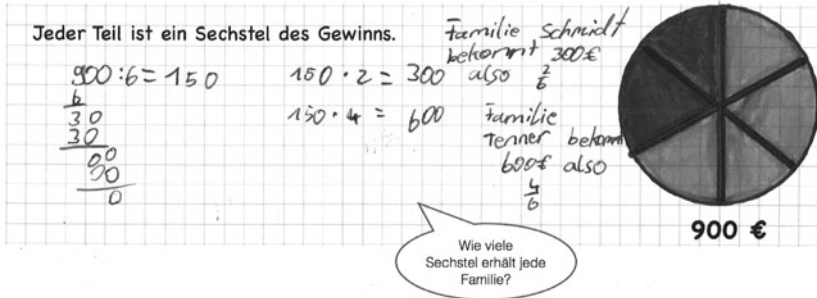 Jeder Teil ist ein Sechstel des Gewinns.
900 : 6 = 150
6
30
30
00
00
0
150 · 2 = 300
150 · 4 = 600
Familie Schmidt
bekommt 300€
also 2/6
Familie
Tenner bekommt
600€ also
4/6
900 €
Wie viele
Sechstel erhält jede
Familie?